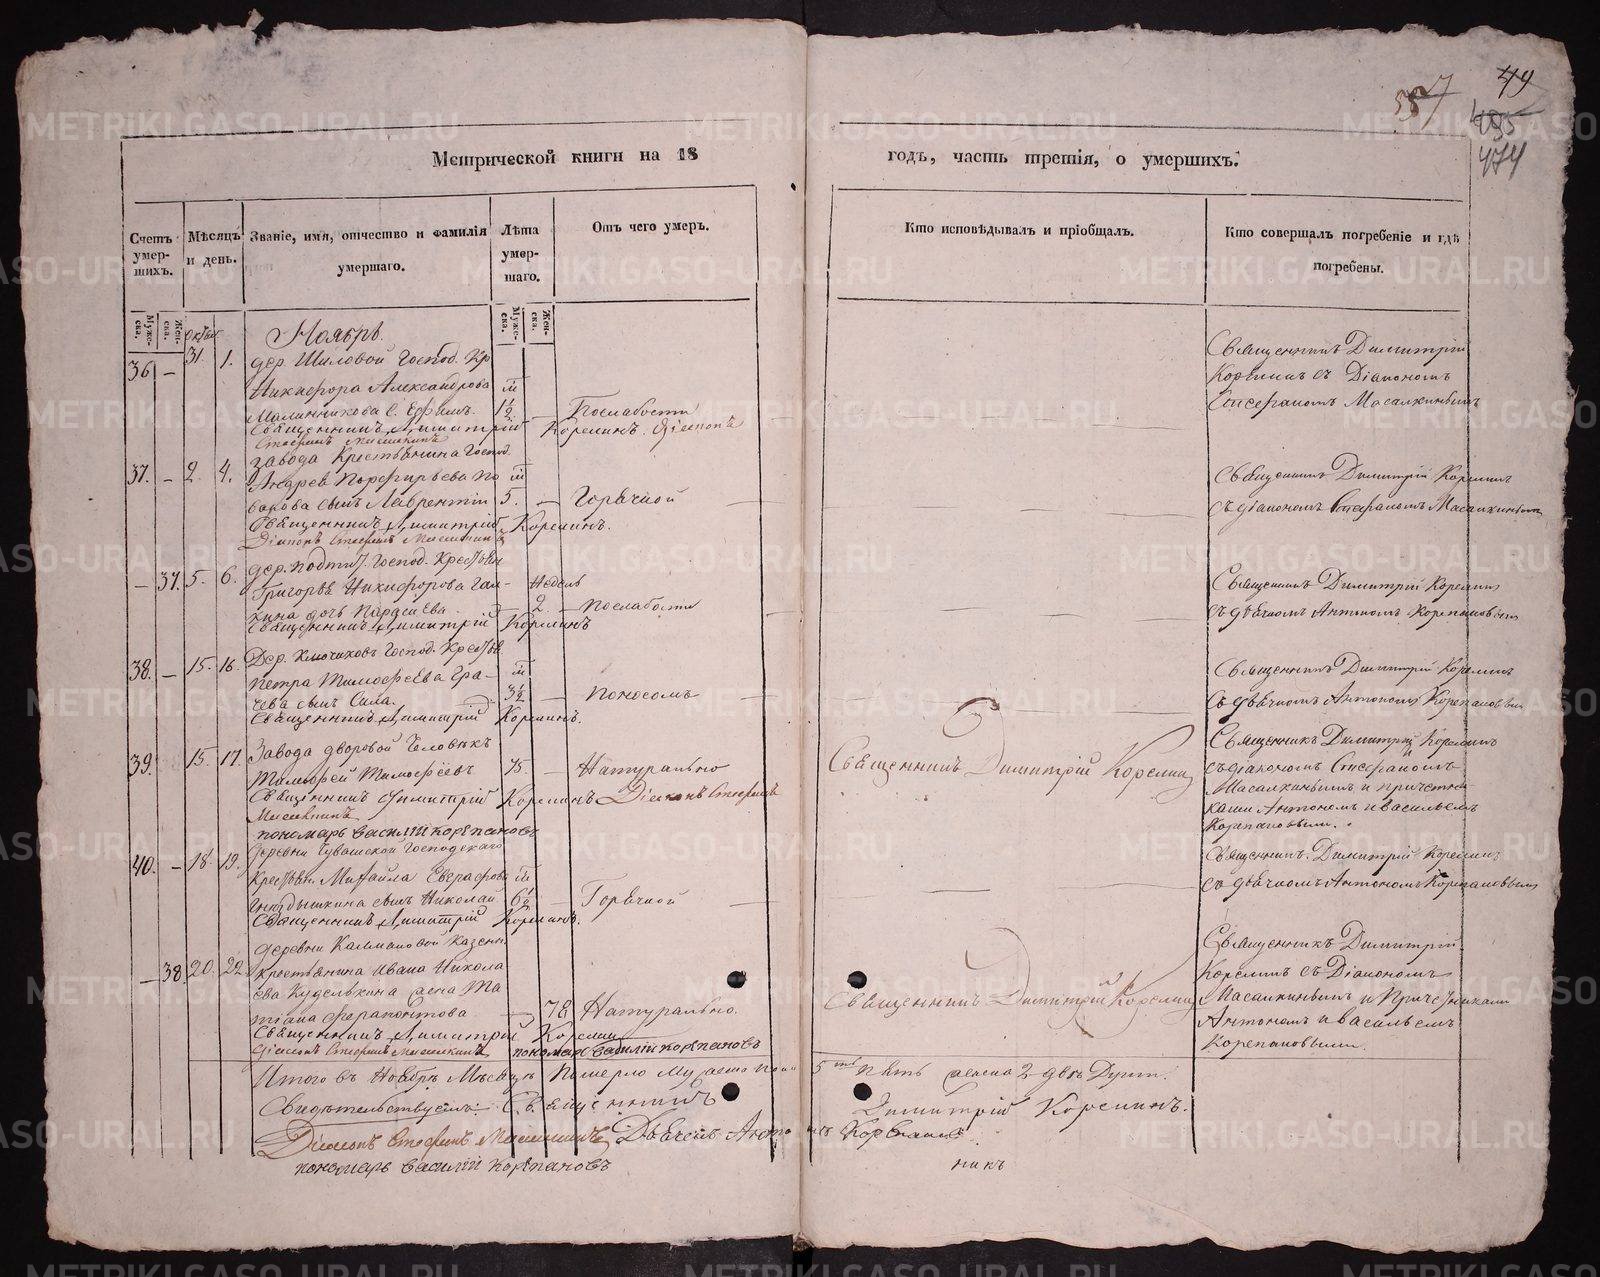 49
557
495
474
Метрической книги на 18 годъ, часть третія, о умершихъ.
Счетъ умер-шихъ.
Мѣсяцъ и день.
Званіе, имя, отчество и фамилія умершаго.
Лѣта умер-шаго.
Отъ чего умеръ.
Кто исповѣдывалъ и пріобщалъ.
Кто совершалъ погребеніе и гдѣ погребены.
Муже-ска.
Жен-ска.
Муже-ска.
Жен-ска.
Ноябрь.
36 — 31. 1.
дер. Шиловой Господ. Кр
Никифора Александрова
Малинникова с. Ефимъ.
1½ — Послабости
Священникъ Димитрій Корелинъ. Діаконъ
Стефанъ Масалкинъ
Священникъ Димитрій
Корелинъ съ Діакономъ
Стефаномъ Масалкинымъ
37. — 2. 4.
завода Крестьянина Господ.
Андрея Порфирьева По
сынъ Лаврентій
5. — Горячкой
Священникъ Димитрій Корелинъ.
Діаконъ Стефанъ Масалкинъ
Священникъ Димитрій Корелинъ
съ діакономъ Стефаномъ Масалкинымъ
— 37. 5. 6.
Григорья Никифорова Гал-
кина дочь
Недель
2. — Послабости
Священникъ Димитрій Корелинъ
Священникъ Димитрій Корелинъ
съ дьячкомъ Антономъ Корепановымъ
38. — 15. 16.
Дер. Ключиковъ Господ. Крестьян
Петра Тимофеева Гра-
чева сынъ Сила.
3½ — Поносомъ
Священникъ Димитрій Корелинъ.
Священникъ Димитрій Корелинъ
съ дьячкомъ Антономъ Корепановымъ
39. 15. 17.
Завода дворовой Человѣкъ
Тимофей Тимофѣевъ
75. — Натурально
Священникъ Димитрій Корелинъ Діаконъ Стефанъ
Масалкинъ
пономарь Василій Корепановъ
Священникъ Димитрій Корелинъ
Священникъ Димитрій Корелинъ
съ діакономъ Стефаномъ
Масалкинымъ и причетни-
ками Антономъ и Васильемъ
Корепановыми.
40. — 18. 19.
деревни Чувашской Господскаго
Крестьян. Михайла
сынъ Николай
6½ — Горячкой
Священникъ Димитрій Корелинъ.
Священникъ Димитрій Корелинъ
съ дьячкомъ Антономъ Корепановымъ
— 38. 20. 22
деревни Калмаковой Казенн.
крестьянина Ивана Никола
ева Куделькина жена Та
тіана Ферапонтова
78 Натурально.
Священникъ Димитрій Корелинъ
Діаконъ Стефанъ Масалкинъ пономарь Василій Корепановъ
Священникъ Димитрій Корелинъ
Священникъ Димитрій
Корелинъ съ Діакономъ
Масалкинымъ и Причетниками
Антономъ и Васильемъ
Корепановыми.
Итого въ Ноябрѣ Мѣсяцѣ Померло Мужеска пола 5ть Пять женска 2 двѣ Души.
Свидѣтельствуемъ: Священникъ Димитрій Корелинъ.
Діаконъ Стефанъ Масалкинъ Дьячекъ Антонъ Корепановъ
пономарь Василій Корепановъ
METRIKI.GASO-URAL.RU